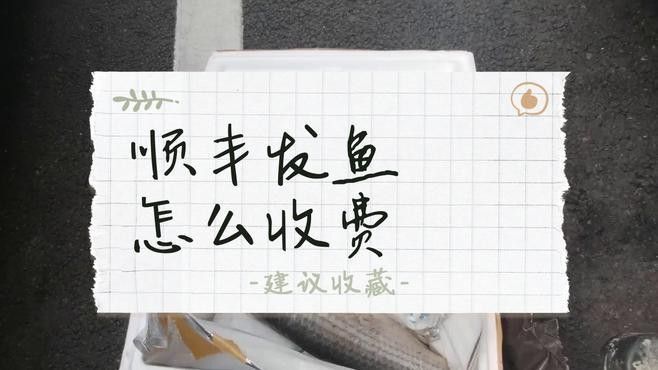 顺丰发鱼
怎么收费
-建议收藏-